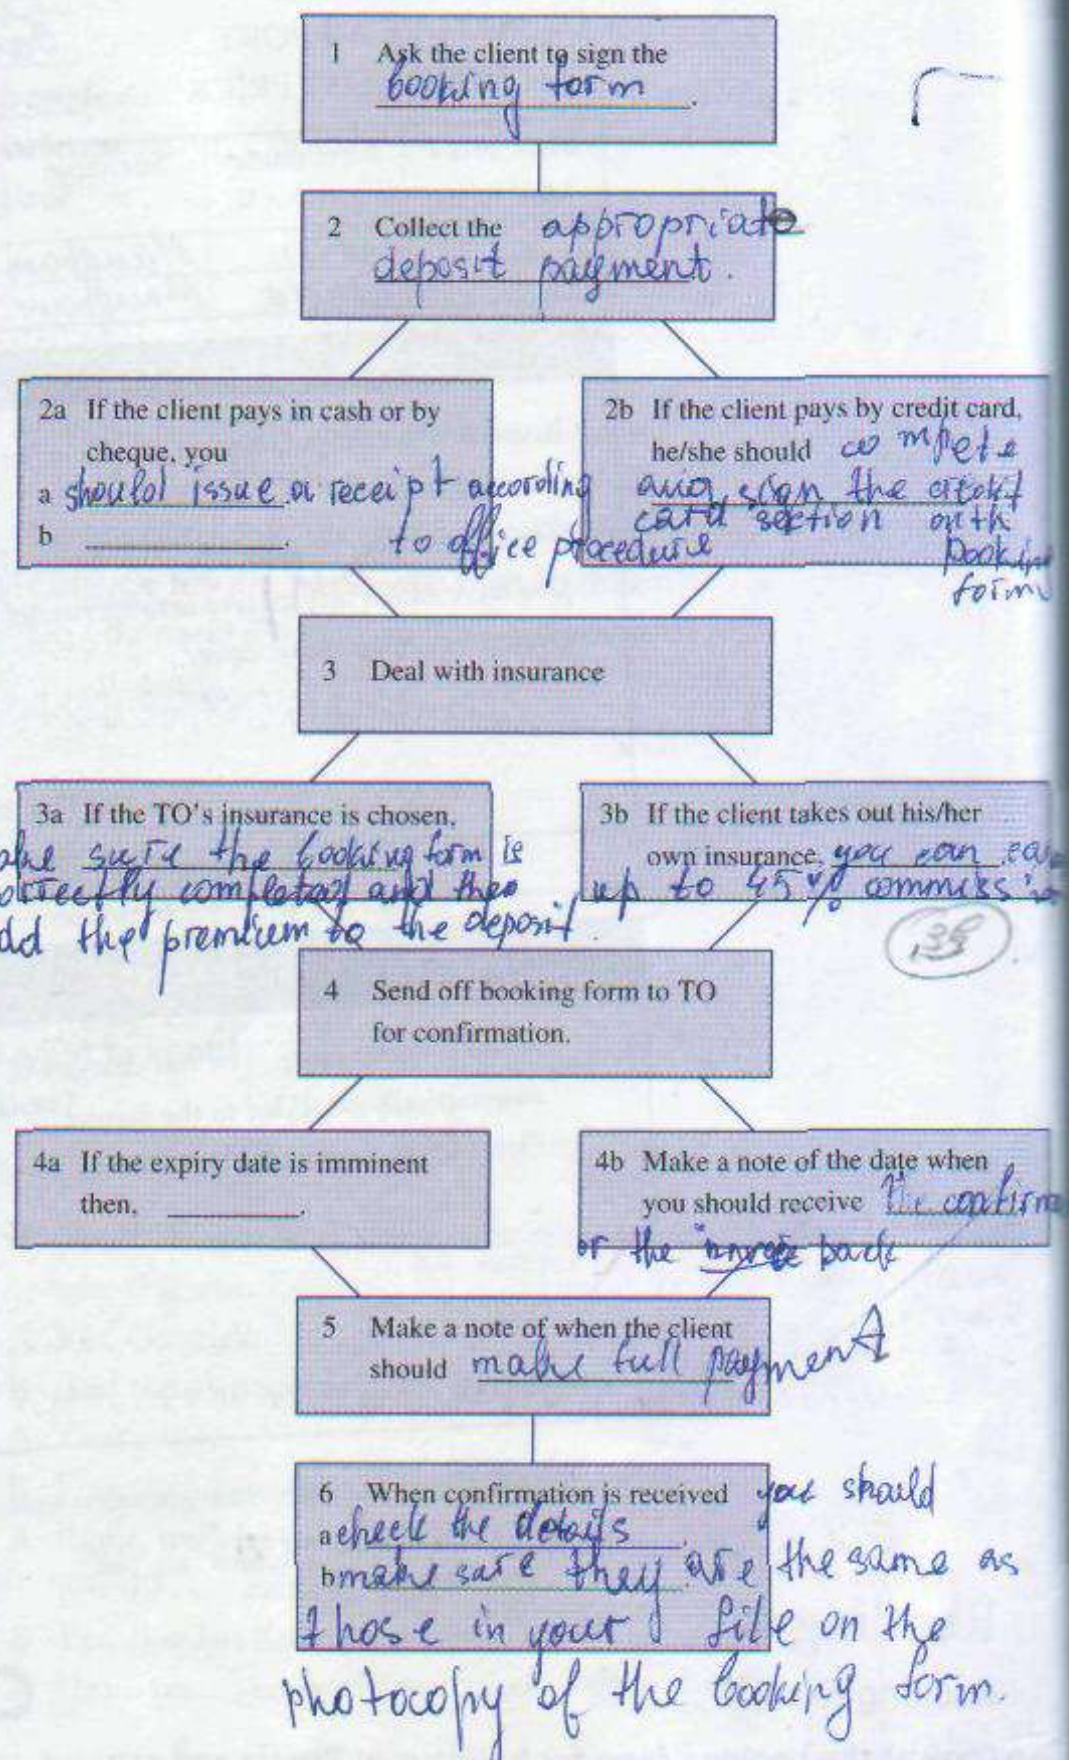 1 Ask the client to sign the
booking form.
2 Collect the appropriate
deposit payment.
2a If the client pays in cash or by
cheque, you
a should issue a receipt according
b to office procedure
2b If the client pays by credit card,
he/she should compete
and sign the credit
card section on th
bookin
form
3 Deal with insurance
3a If the TO's insurance is chosen,
ake sure the booking form is
orrectly completed and the
dd the premium to the deposit.
3b If the client takes out his/her
own insurance, you can ea
up to 45% commiss
4 Send off booking form to TO
for confirmation.
4a If the expiry date is imminent
then,
4b Make a note of the date when
you should receive the confirm
or the back
5 Make a note of when the client
should make full payment
6 When confirmation is received you should
a check the details
b make sure they are the same as
those in your file on the
photocopy of the booking form.